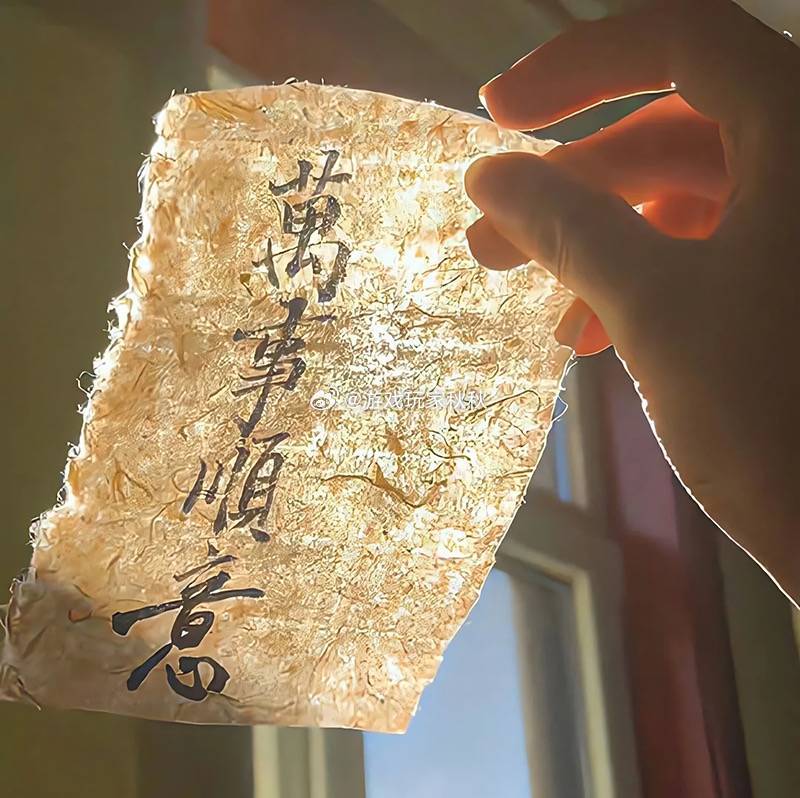 萬事順意
@游戏玩家秋秋